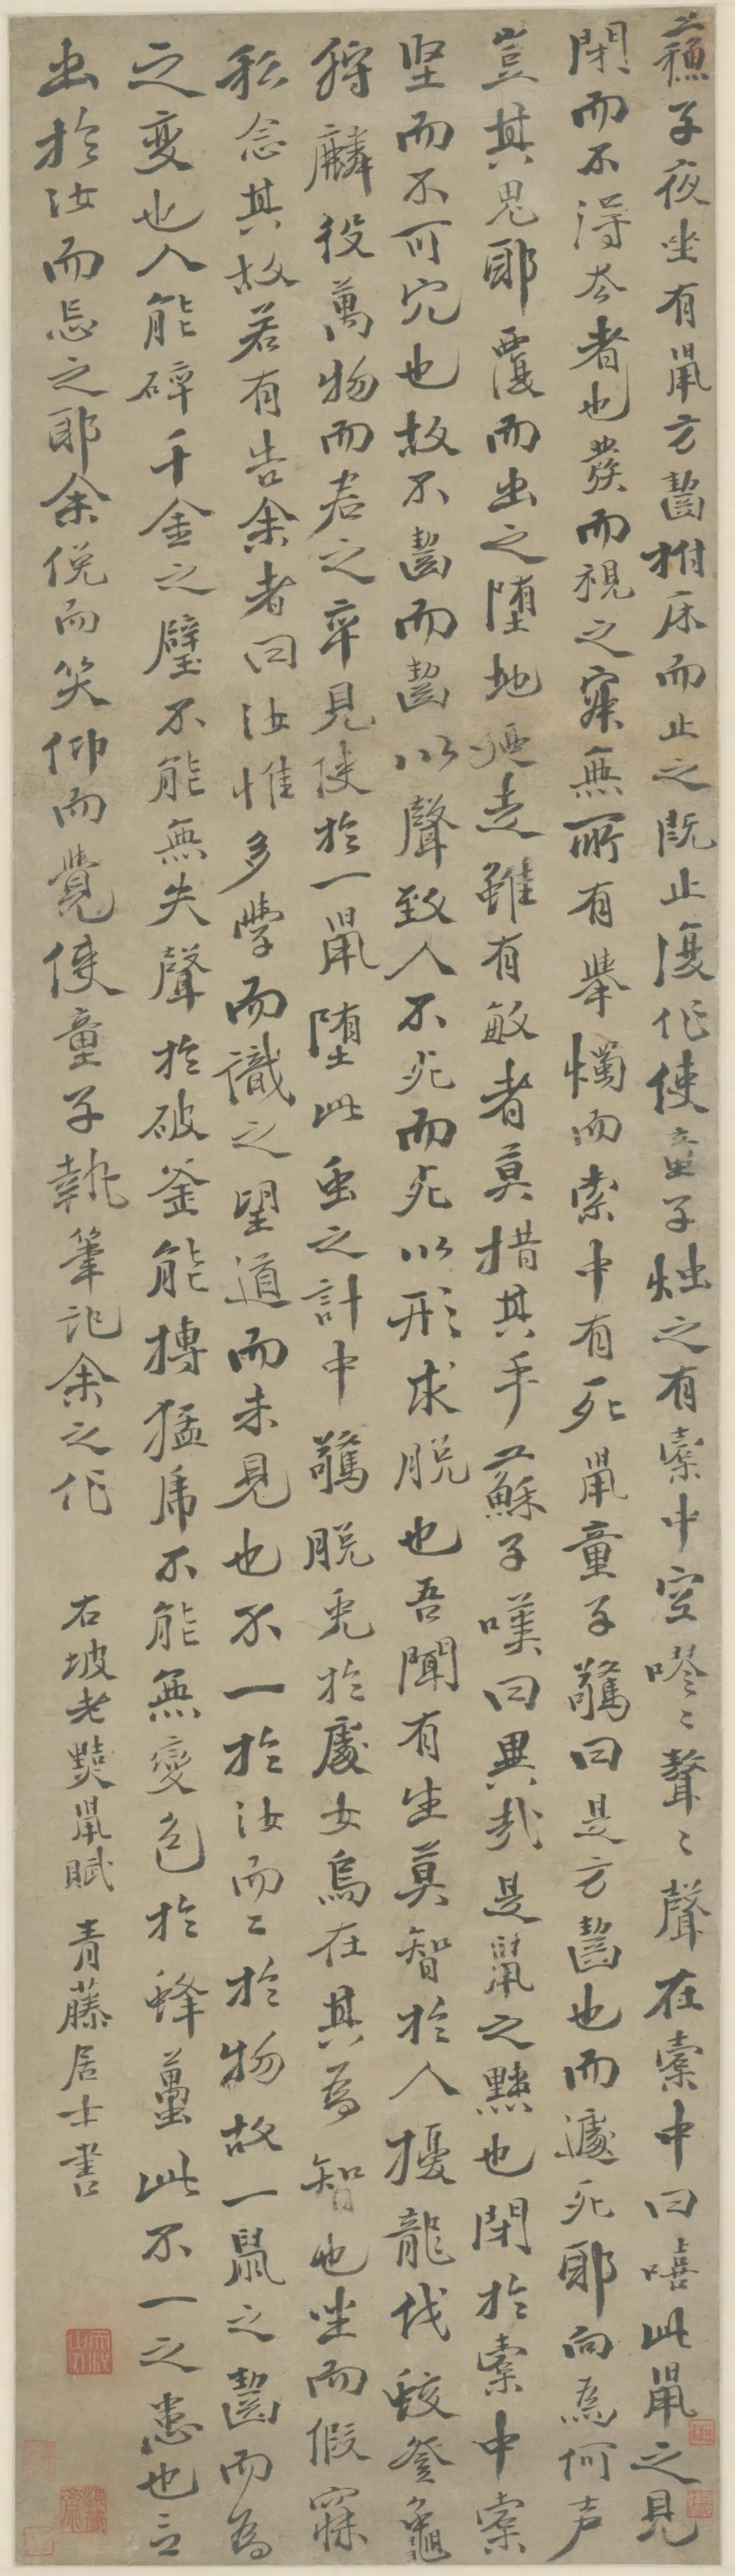 蘇子夜坐有鼠方齧拊床而止之既止復作使童子燭之有橐中空嘐〻聱〻聲在橐中曰嘻此鼠之見
閉而不得去者也發而視之寂無所有舉燭而索中有死鼠童子驚曰是方齧也而遽死耶向為何声
豈其鬼耶覆而出之墮地廼走雖有敏者莫措其手蘇子嘆曰異哉是鼠之黠也閉於橐中橐
堅而不可穴也故不齧而齧以聲致人不死而死以形求脫也吾聞有生莫智於人擾龍伐蛟登龜
狩麟役萬物而君之卒見使於一鼠墮此虫之計中驚脫兔於處女烏在其為智也坐而假寐
私念其故若有告余者曰汝惟多學而識之望道而未見也不一於汝而二於物故一鼠之齧而為
之變也人能碎千金之璧不能無失聲於破釜能搏猛虎不能無變色於蜂蠆此不一之患也言
出於汝而忘之耶余俛而笑仰而覺使童子執筆記余之作 右坡老黠鼠賦 青藤居士書